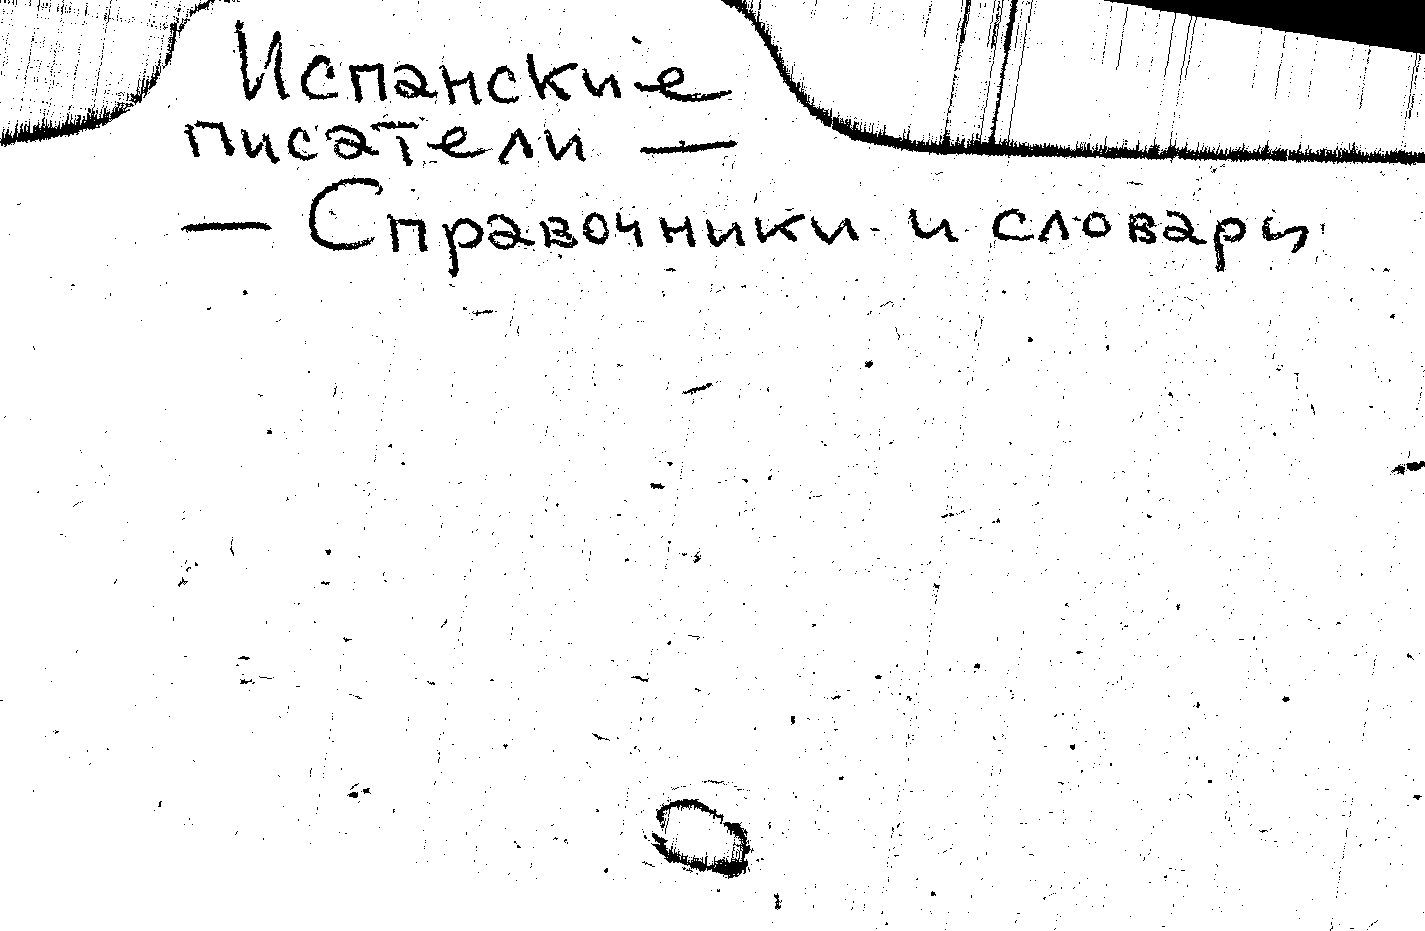 Испанские
писатели —
— Справочники и словари